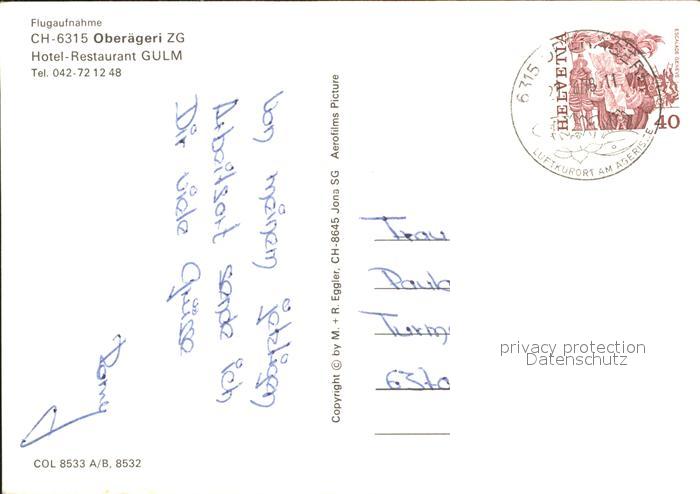 Flugaufnahme
CH-6315 Oberägeri ZG
Hotel-Restaurant GULM
Tel. 042-72 12 48
Von meinem jetzigen
Arbeitsort sende ich
Dir viele Grüsse
COL 8533 A/B, 8532
Copyright © by M. + R. Eggler, CH-8645 Jona SG Aerofilms Picture
HELVETIA
ESCALADE GENEVE
40
6315
LUFTKURORT AM AEGERISEE
Frau
Paul
Turm
6370
privacy protection
Datenschutz